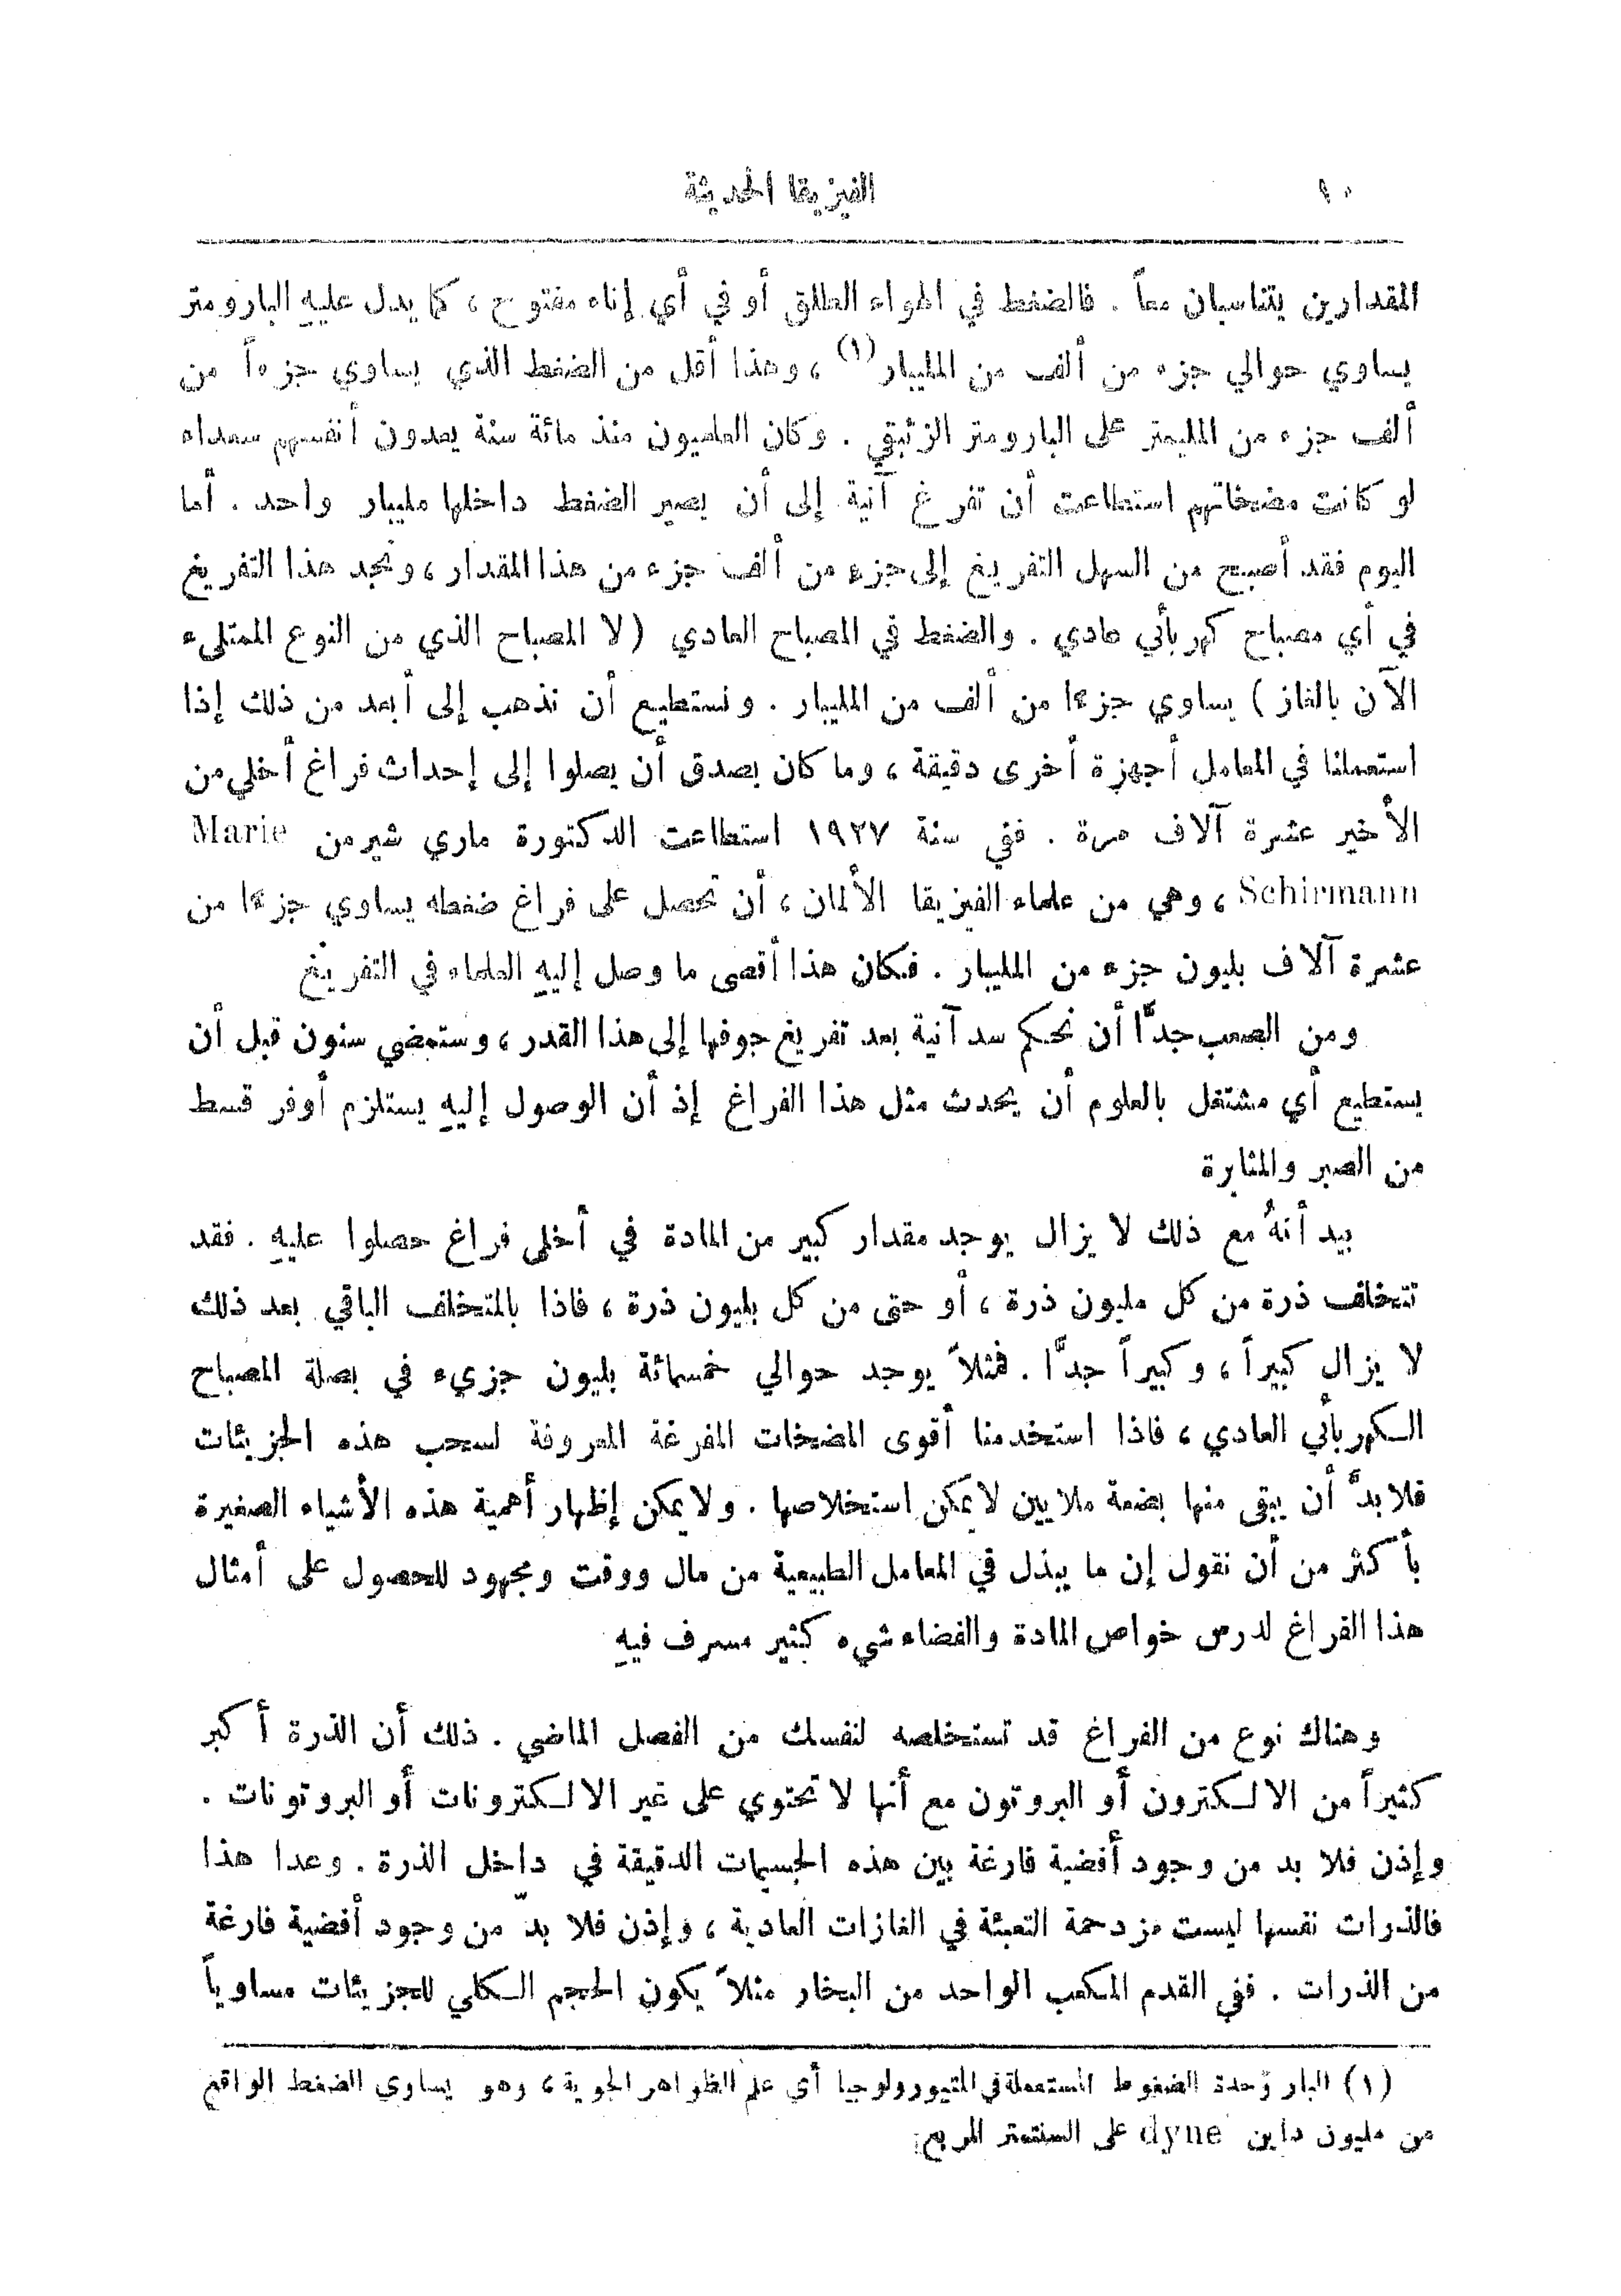 ١٠ الفيزيقا الحديثة
المقدارين يتناسبان معاً . فالضغط في الهواء الطلق أو في أي إناء مفتوح ، كما يدل عليهِ البارومتر
يساوي حوالي جزء من ألف من المليبار (١) ، وهذا أقل من الضغط الذي يساوي جزءاً من
ألف جزء من المليمتر على البارومتر الزئبقي . وكان العلميون منذ مائة سنة يعدون أنفسهم سعداء
لو كانت مضخاتهم استطاعت أن تفرغ آنية إلى أن يصير الضغط داخلها مليبار واحد . أما
اليوم فقد أصبح من السهل التفريغ إلى جزء من ألف جزء من هذا المقدار ، ونجد هذا التفريغ
في أي مصباح كهربأئي عادي . والضغط في المصباح العادي ( لا المصباح الذي من النوع الممتلىء
الآن بالغاز ) يساوي جزءًا من ألف من المليبار . ونستطيع أن نذهب إلى أبعد من ذلك إذا
استعملنا في المعامل أجهزة أخرى دقيقة ، وما كان يصدق أن يصلوا إلى إحداث فراغ أخلى من
الأخير عشرة آلاف مرة . ففي سنة ١٩٢٧ استطاعت الدكتورة ماري شيرمن Marie
Schirmann ، وهي من علماء الفيزيقا الألمان ، أن تحصل على فراغ ضغطه يساوي جزءًا من
عشرة آلاف بليون جزء من المليبار . فكان هذا أقصى ما وصل إليهِ العلماء في التفريغ
ومن الصعب جدًّا أن نحكم سد آنية بعد تفريغ جوفها إلى هذا القدر ، وستمضي سنون قبل أن
يستطيع أي مشتغل بالعلوم أن يحدث مثل هذا الفراغ إذ أن الوصول إليهِ يستلزم أوفر قسط
من الصبر والمثابرة
بيد أنهُ مع ذلك لا يزال يوجد مقدار كبير من المادة في أخلى فراغ حصلوا عليهِ . فقد
تتخلف ذرة من كل مليون ذرة ، أو حتى من كل بليون ذرة ، فاذا بالمتخلف الباقي بعد ذلك
لا يزال كبيراً ، وكبيراً جدًّا . فمثلاً يوجد حوالي خمسمائة بليون جزيء في بصلة المصباح
الكهربأئي العادي ، فاذا استخدمنا أقوى المضخات المفرغة المعروفة لسحب هذه الجزيئات
فلا بدَّ أن يبقى منها بضعة ملايين لا يمكن استخلاصها . ولا يمكن إظهار أهمية هذه الأشياء الصغيرة
بأكثر من أن نقول إن ما يبذل في المعامل الطبيعية من مال ووقت ومجهود للحصول على أمثال
هذا الفراغ لدرس خواص المادة والفضاء شيء كثير مسرف فيهِ
وهناك نوع من الفراغ قد تستخلصه لنفسك من الفصل الماضي . ذلك أن الذرة أكبر
كثيراً من الالكترون أو البروتون مع أنها لا تحتوي على غير الالكترونات أو البروتونات .
وإذن فلا بد من وجود أفضية فارغة بين هذه الجسيمات الدقيقة في داخل الذرة . وعدا هذا
فالذرات نفسها ليست مزدحمة التعبئة في الغازات العادية ، وإذن فلا بدّ من وجود أفضية فارغة
من الذرات . ففي القدم المكعب الواحد من البخار مثلاً يكون الحجم الكلي للجزيئات مساوياً
(١) البار وحدة الضغوط المستعملة في المتيورولوجيا أي علم الظواهر الجوية ، وهو يساوي الضغط الواقع
من مليون داين dyne على السنتمتر المربع